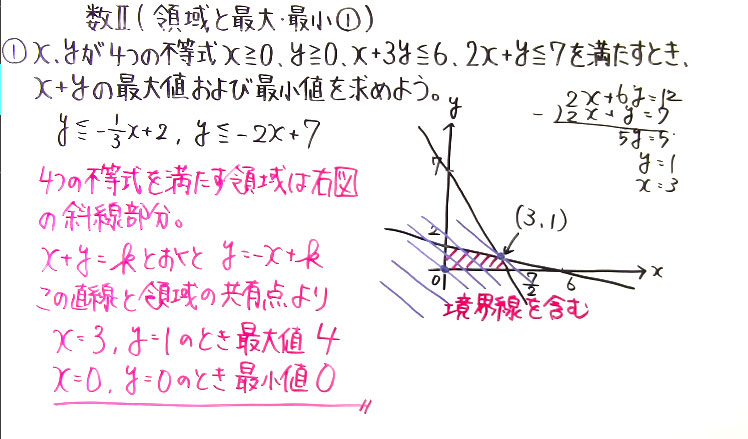 数Ⅱ(領域と最大・最小①)
① x、yが4つの不等式x≧0、y≧0、x+3y≦6、2x+y≦7を満たすとき、
x+yの最大値および最小値を求めよう。
y≦-1/3x+2, y≦-2x+7
2x+6y=12
-)2x+y=7
5y=5
y=1
x=3
4つの不等式を満たす領域は右図
の斜線部分。
x+y=kとおくと y=-x+k
この直線と領域の共有点より
x=3, y=1のとき最大値4
x=0, y=0のとき最小値0
y
7
2
(3,1)
0
7/2
6
x
境界線を含む